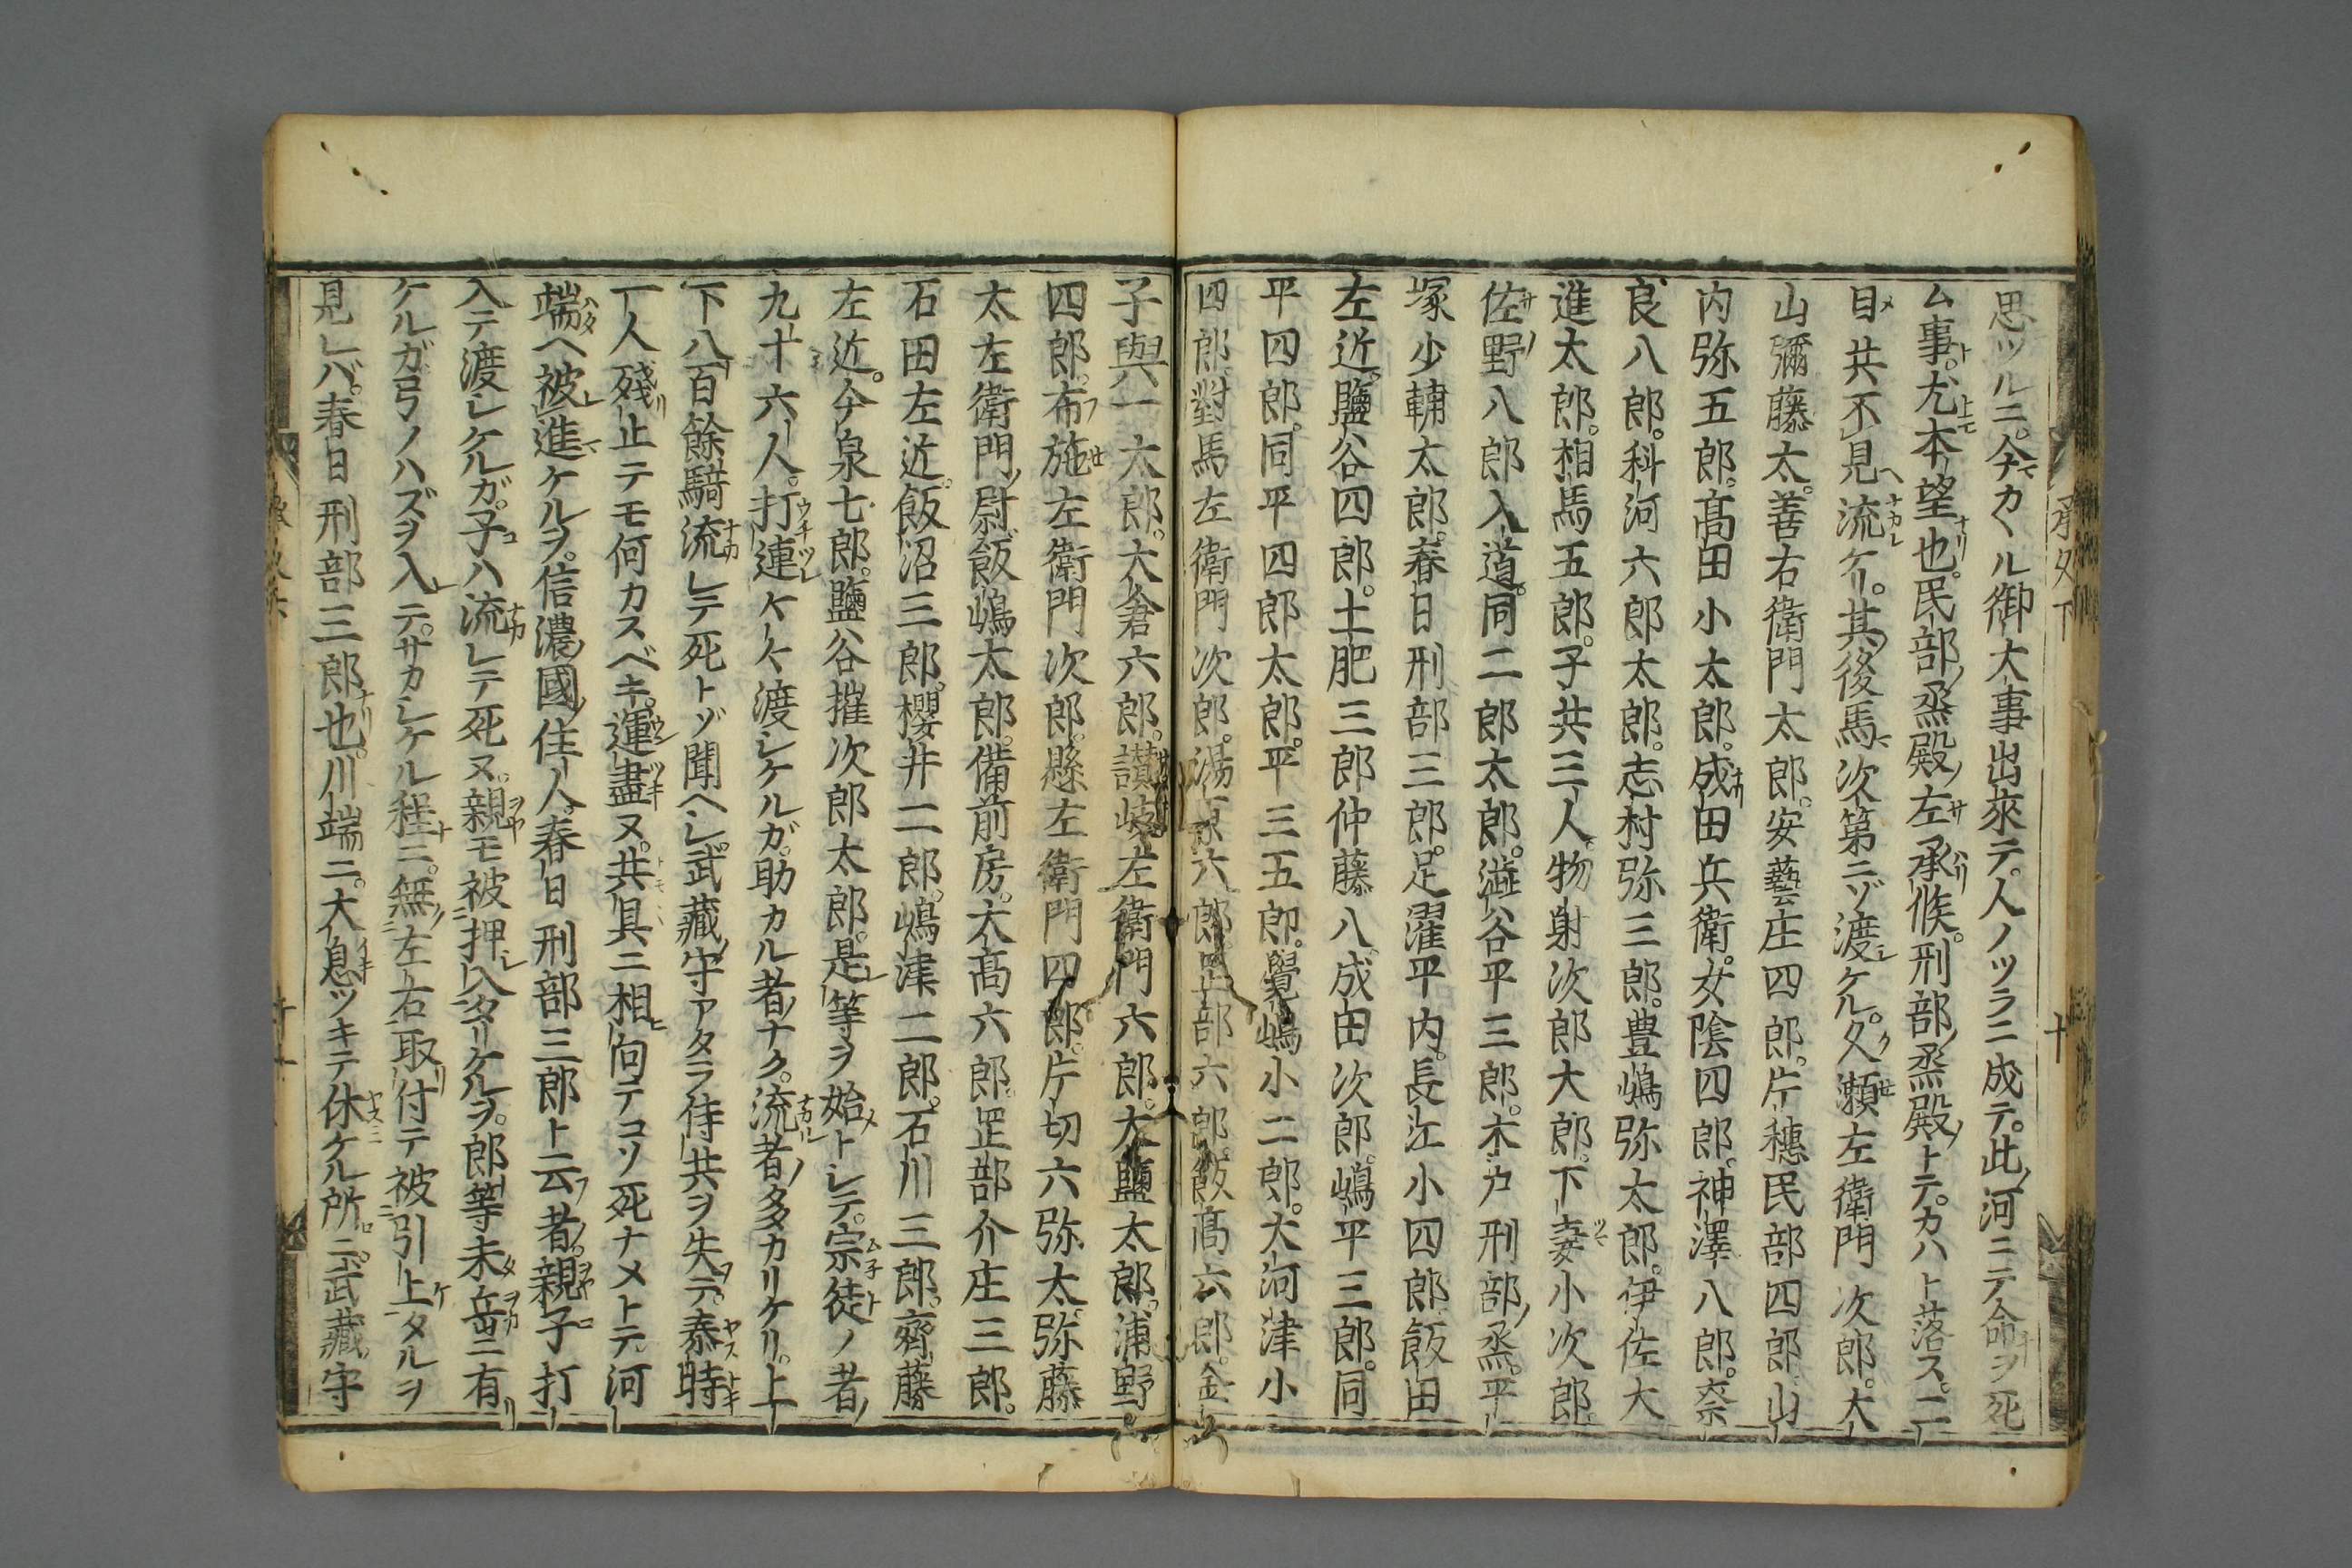 思ツルニ。今カヽル御大事出來テ。人ノツラニ成テ。此河ニテ命ヲ死
ム事。尤本望也。民部ノ烝殿ノ左承候。刑部ノ烝殿ノトテ。カハト落ス。二
目共不見流ケリ。其後馬次第ニゾ渡ケル。久瀬左衛門次郎。大
山彌藤太。善右衛門太郎。安藝庄四郎。片穗民部四郎。山
内弥五郎。髙田小太郎。成田兵衛。女陰四郎。神澤八郎。奈
良八郎。科河六郎太郎。志村弥三郎。豊嶋弥太郎。伊佐大
進太郎。相馬五郎。子共三人。物射次郎大郎。下妻小次郎
佐野八郎入道。同二郎太郎。澁谷平三郎。木戸刑部ノ烝。平
塚少輔太郎。春日刑部三郎。足濯平内。長江小四郎飯田
左近。鹽谷四郎。土肥三郎仲藤八。成田次郎。嶋平三郎。同
平四郎。同平四郎太郎。平三五郎。覺嶋小二郎。大河津小
四郎。對馬左衛門次郎。湯原六郎。罡部六郎。飯髙六郎。金
子與一太郎。大倉六郎。讃岐左衛門六郎。大鹽太郎。浦野
四郎。布施左衛門次郎。縣左衛門四郎。片切六弥太。弥藤
太左衛門ノ尉。飯嶋太郎。備前房。太髙六郎。罡部介庄三郎。
石田左近。飯沼三郎。櫻井二郎。嶋津二郎。石川三郎。齊藤
左近。今泉七郎。鹽谷摧次郎太郎。是等ヲ始トシテ。宗徒ノ者
九十六人。打連ケヽケ渡シケルガ。助カル者ナク。流者多カリケリ。上
下八百餘騎流シテ死トゾ聞ヘシ。武藏守アタラ侍共ヲ失テ。泰時
一人殘止テモ何カスベキ。運盡ヌ。共具ニ相向テコソ死ナメトテ。河
端ヘ被進ケルヲ。信濃國ノ住人。春日刑部三郎ト云者。親子打
入テ渡シケルガ。子ハ流レテ死ヌ。親モ被押入タリケルヲ。郎等未岳ニ有
ケルガ。弓ノハズヲ入テ。サカシケル程ニ。無左右取付テ被引上タルヲ
見レバ。春日刑部三郎也。川端ニ。大息ツキテ休ケル所ニ。武藏守
承久下
十